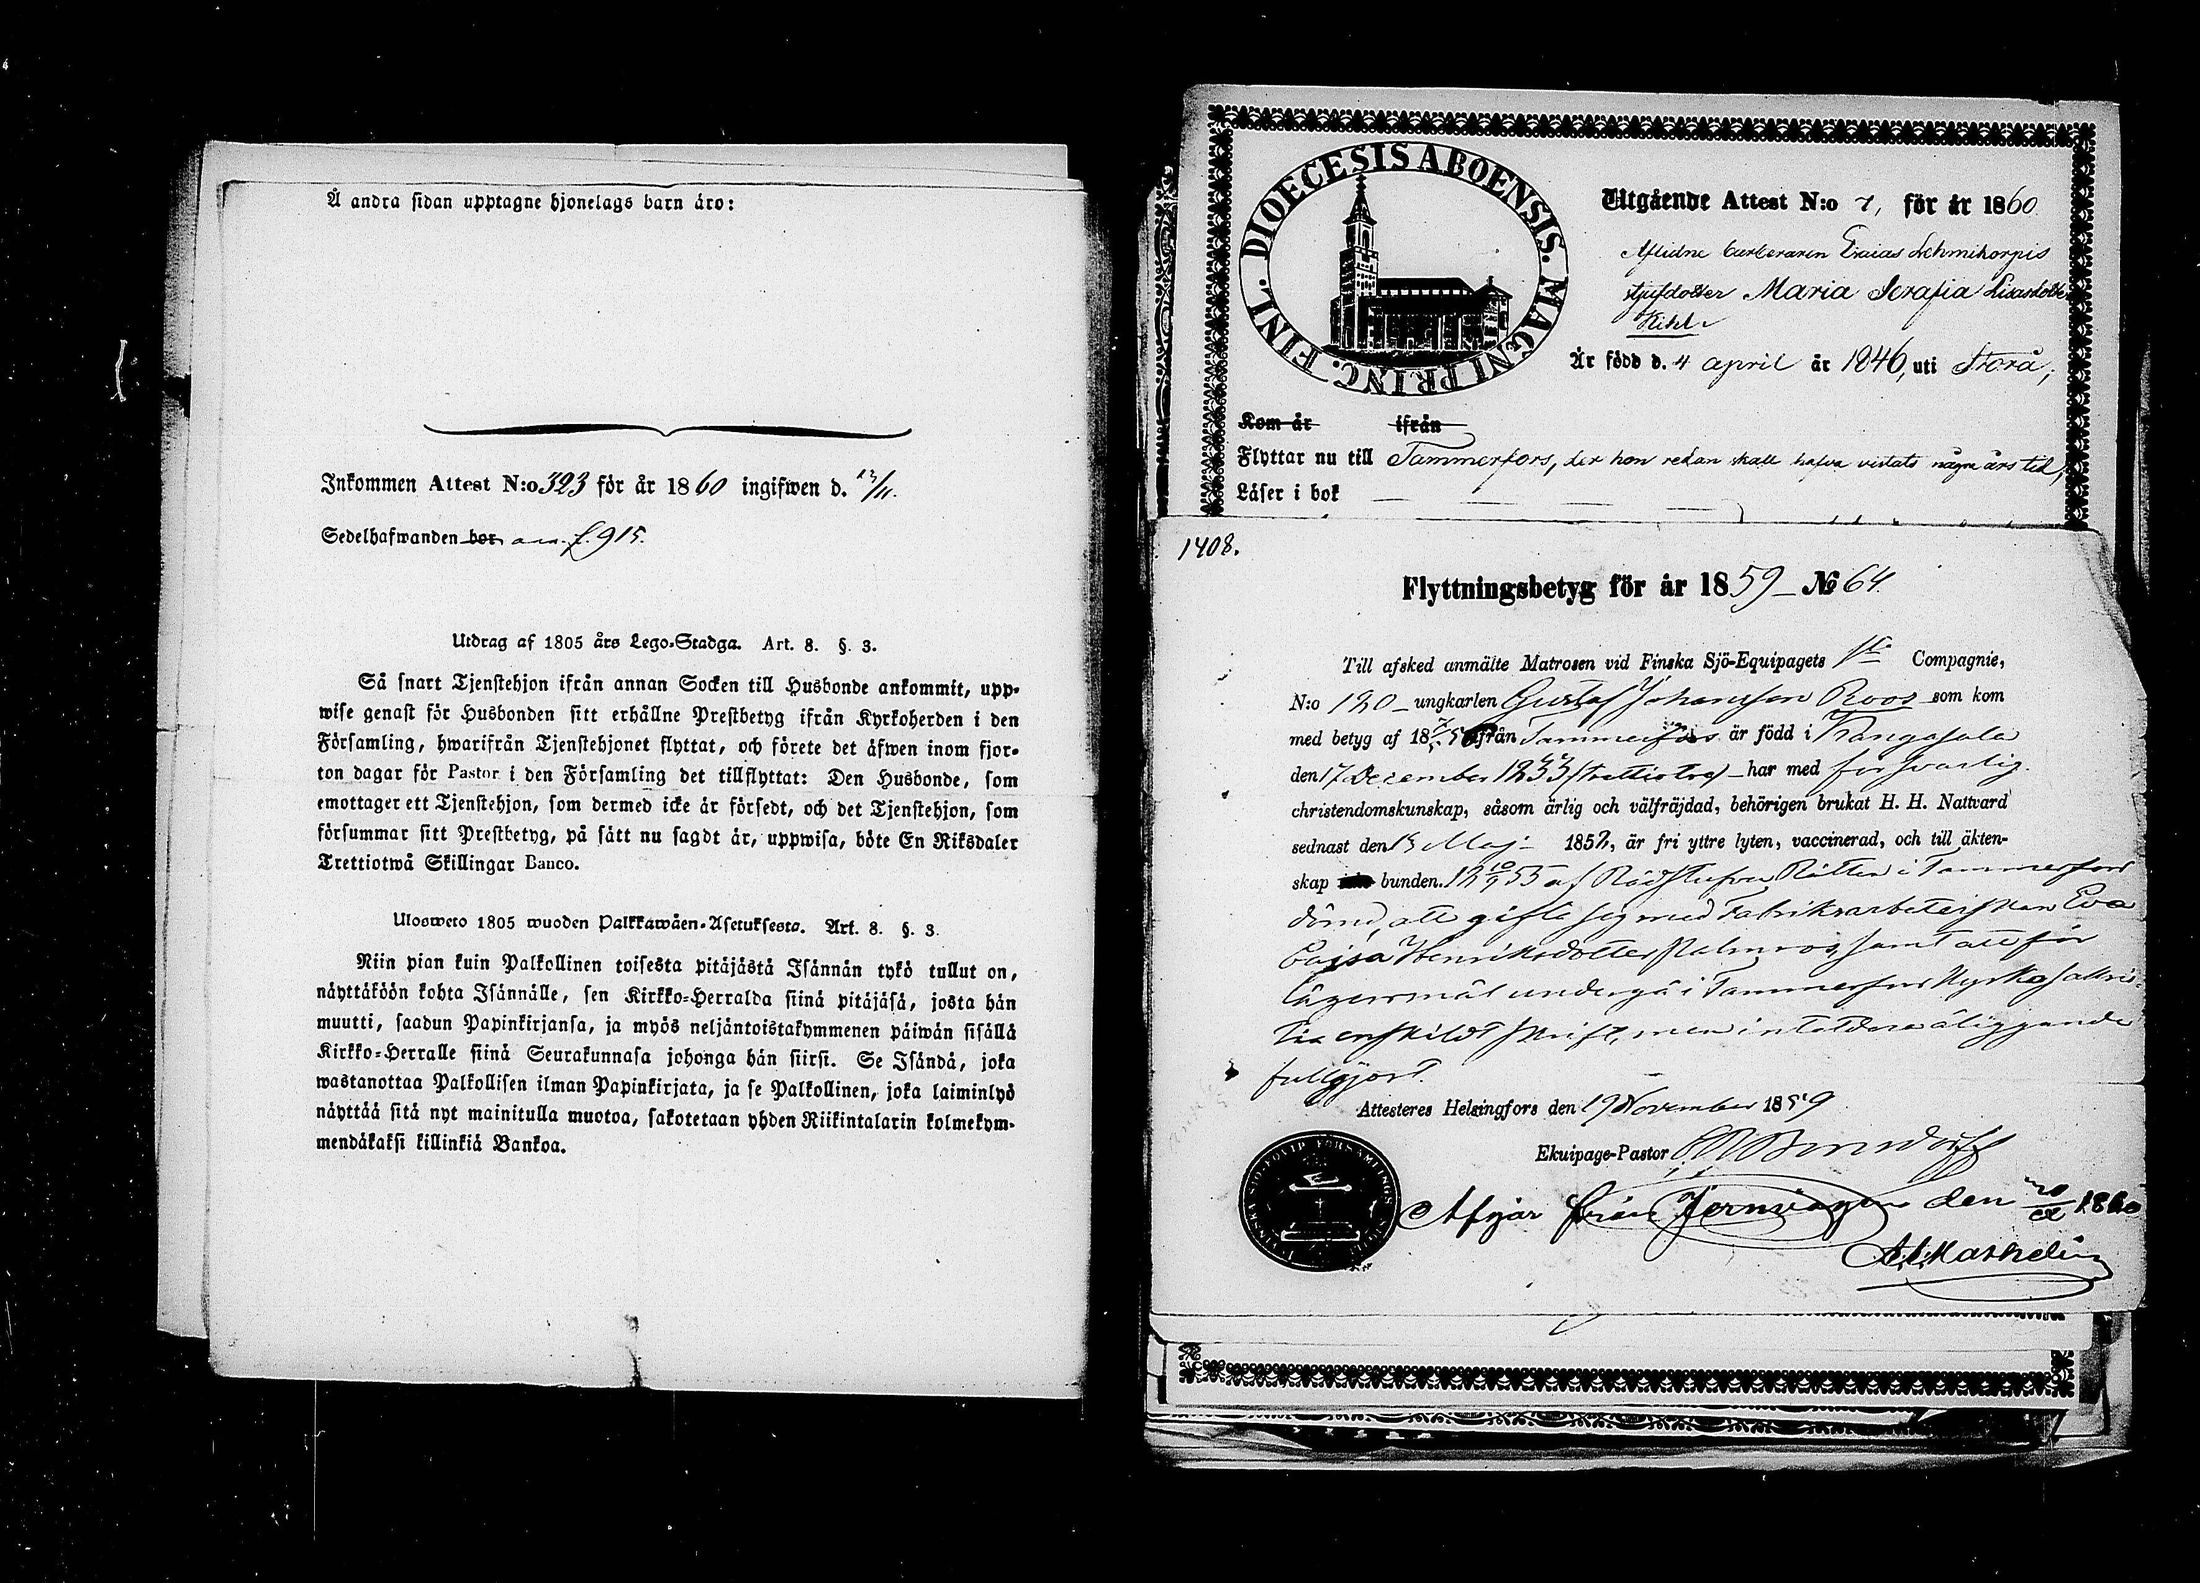 Å andra sidan upptagne hjonelags barn äro:
Inkommen Attest N:o 323 för år 1860 ingifwen d. 13/11.
Sedelhafwanden bor ann. f. 915.
Utdrag af 1805 års Lego-Stadga. Art. 8. §. 3.
Så snart Tjenstehjon ifrån annan Socken till Husbonde ankommit, upp-
wise genast för Husbonden sitt erhållne Prestbetyg ifrån Kyrkoherden i den
Församling, hwarifrån Tjenstehjonet flyttat, och förete det äfwen inom fjor-
ton dagar för Pastor i den Församling det tillflyttat: Den Husbonde, som
emottager ett Tjenstehjon, som dermed icke är försedt, och det Tjenstehjon, som
försummar sitt Prestbetyg, på sätt nu sagdt är, uppwisa, böte En Riksdaler
Trettiotwå Skillingar Banco.
Ulosweto 1805 wuoden Palkkawäen-Asetuksesta. Art. 8. §. 3.
Niin pian kuin Palkollinen toisesta pitäjästä Isännän tykö tullut on,
näyttäköön kohta Isännälle, sen Kirkko-Herralda siinä pitäjäsä, josta hän
muutti, saadun Papinkirjansa, ja myös neljäntoistakymmenen päiwän sisällä
Kirkko-Herralle siinä Seurakunnasa johonga hän siirsi. Se Isändä, joka
wastanottaa Palkollisen ilman Papinkirjata, ja se Palkollinen, joka laiminlyö
näyttää sitä nyt mainitulla muotoa, sakotetaan yhden Riikintalarin kolmekym-
mendäkaksi killinkiä Bankoa.
DIOECESIS ABOENSIS. MAGNI PRINC. FINL.
Utgående Attest N:o 7, för år 1860
Aflidne Esaias Lehmikorpis
styfdotter Maria Serafia Lisasdotter
Kihl
Är född d. 4 april år 1846, uti Storå,
Kom år ifrån
Flyttar nu till Tammerfors, der hon redan skall hafva vistats någre års tid,
Läser i bok
1408.
Flyttningsbetyg för år 1859 – № 64.
Till afsked anmälte Matrosen vid Finska Sjö-Equipagets 1sta Compagnie,
N:o 120 – ungkarlen Gustaf Johansson Roos som kom
med betyg af 18 ifrån Tammerfors är född i Kangasala
den 17 December 1833 (trettiotre) – har med försvarlig
christendomskunskap, såsom ärlig och välfräjdad, behörigen brukat H. H. Nattvard
sednast den 15 Maj – 1857, är fri yttre lyten, vaccinerad, och till äkten-
skap bunden. 18 10/9 55 af Rådstufvu Rätten i Tammerfors
dömd, att gifta sig med Fabriksarbeterskan Eva
Cajsa Henriksdotter Palmroos, samt att för
lägersmål undergå i Tammerfors Kyrkas sakris-
tia enskildt skrift, men intetdera åliggande
fullgjort.
Attesteres Helsingfors den 19 November 1859
Ekuipage-Pastor
Afgår från Jernvägen den 20/ 1860